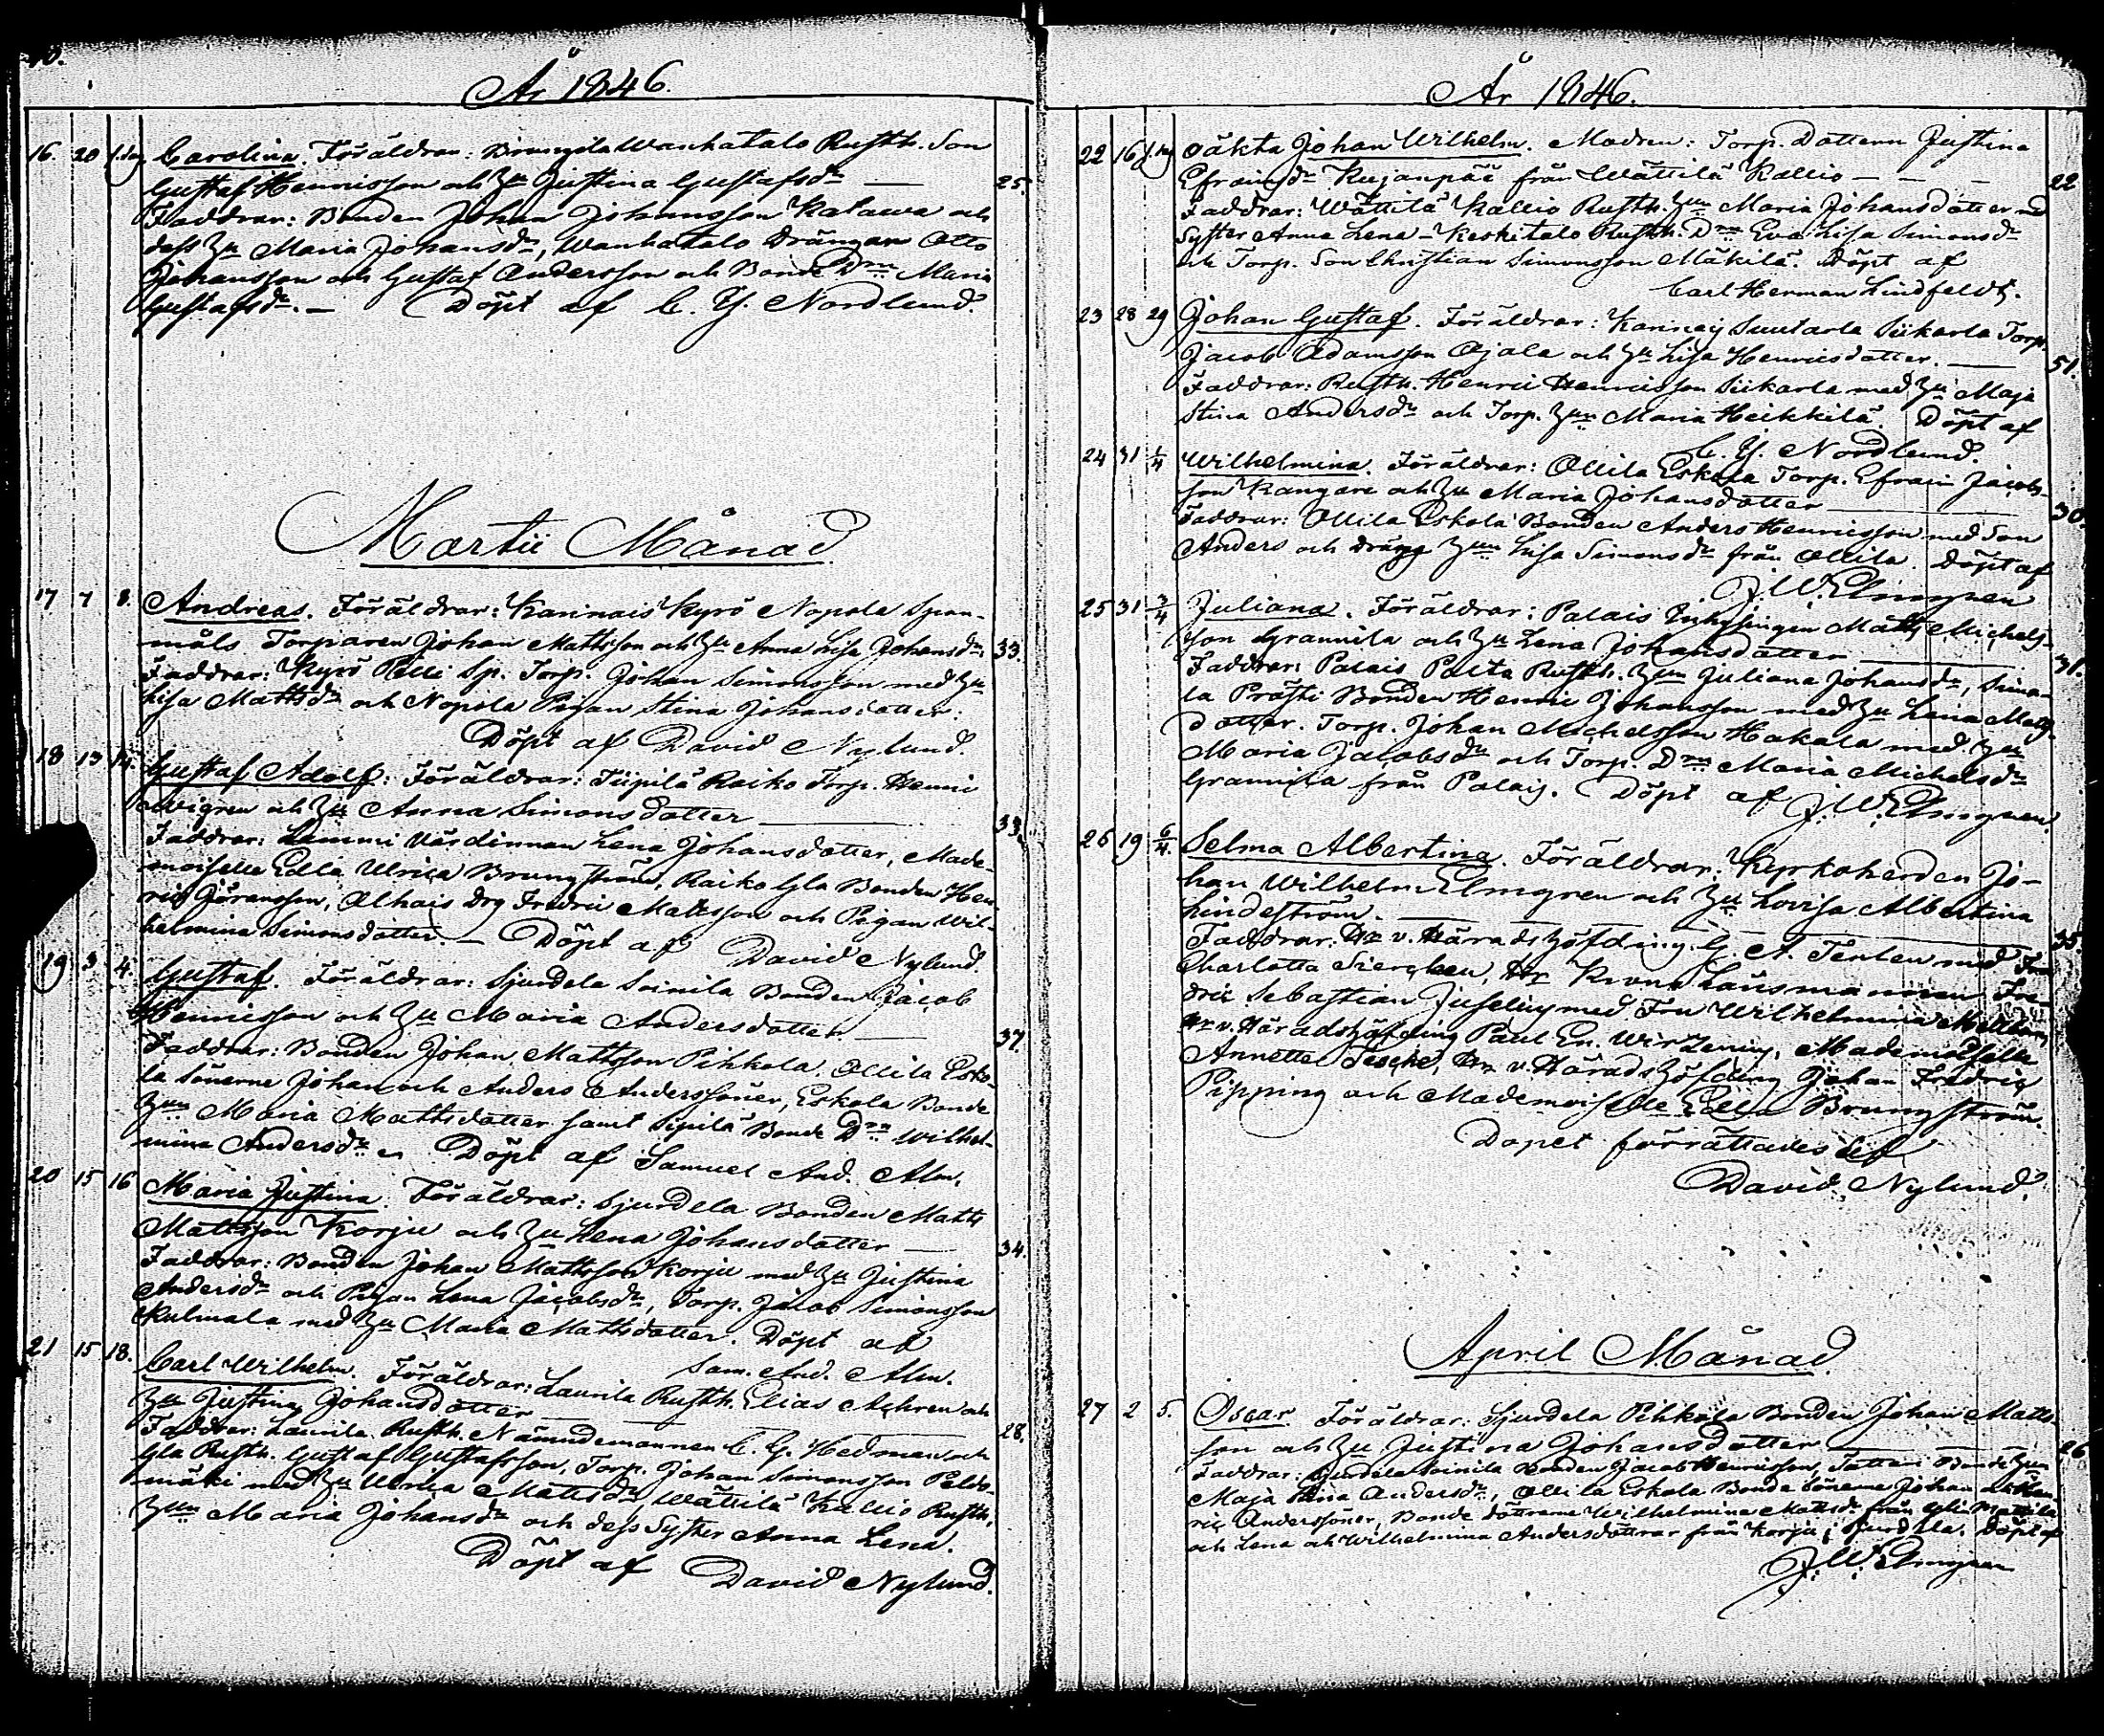 10.
År 1846.
16. 20 s.dag Carolina. Föräldrar: Brungila Wanhatalo Rusth. Son
Gustaf Henricsson och Hu Justina Gustafsdr 25.
Faddrar: Bonden Johan Johansson Katawa och
dess Hu Maria Johansdr, Wanhatalo Drängar Otto
Johansson och Gustaf Andersson och Bonde Drn Maria
Gustafsdr. — Döpt af C. Fj. Nordlund.
Martii Månad
17 7 8. Andreas. Föräldrar: Karinais Kyrö Nopola Span-
måls Torparen Johan Mattsson och Hu Anna Lisa Johansdr 33.
Faddrar: Kyrö Pelli Sp. Torp. Johan Simonsson med Hu
Lisa Mattsdr och Nopola Pigan Stina Johansdotter.
Döpt af David Nylund.
18 13 14. Gustaf Adolf. Föräldrar: Tiipilä Raiko Torp. Henric
Wigren och Hu Anna Simonsdotter 33.
Faddrar: Lammi Värdinnan Lena Johansdotter, Made-
moiselle Edla Ulrica Brungström, Raiko Gla Bonden Hen-
ric Göransson, Alhais Drg Fredric Mattsson och Pigan Wil-
helmina Simonsdotter. — Döpt af David Nylund.
19 3 4. Gustaf. Föräldrar: Sjurdela Soinila Bonden Jacob
Henricsson och Hu Maria Andersdotter. 37.
Faddrar: Bonden Johan Mattsson Pihkola, Ollila Esko-
la Sönerne Johan och Anders Anderssöner, Eskola Bonde
Hun Maria Mattsdotter samt Sipilä Bonde Drn Wilhel-
mina Andersdr Döpt af Samuel And. Alm.
20 15 16 Maria Justina. Föräldrar: Sjurdela Bonden Matts
Mattsson Korju och Hu Lena Johansdotter 34.
Faddrar: Bonden Johan Mattsson Korju med Hu Justina
Andersdr och Pigan Lena Jacobsdr, Torp. Jacob Simonsson
Kulmala med Hu Maria Mattsdotter. Döpt af
Sam. And. Alm.
21 15 18. Carl Wilhelm. Föräldrar: Laurila Rusth. Elias Achren och
Hu Justina Johansdotter 28.
Faddrar: Laurila Rusth. Nämndemannen C. G. Hedman och
Gla Rusth. Gustaf Gustafsson, Torp. Johan Simonsson Peldo-
mäki med Hu Ulrica Mattsdr, Wättilä Kallio Rusth.
Hun Maria Johansdr och dess Syster Anna Lena.
Döpt af David Nylund.
År 1846.
22 16 s.dag Oäkta Johan Wilhelm. Modren: Torp. Dottern Justina
Efraimsdr Kujanpää från Wättilä Kallio — — — 22
Faddrar: Wättilä Kallio Rusth. Hun Maria Johansdotter med
Syster Anna Lena - Keskitalo Rusth. Drn Eva Lisa Simonsdr
och Torp. Son Christian Simonsson Mäkilä. Döpt af
Carl Herman Lindfeldt.
23 28 29 Johan Gustaf. Föräldrar: Karinais Suutarla Siikarla Torp.
Jacob Adamsson Ojala och Hu Lisa Henricsdotter. 51.
Faddrar: Rusth. Henric Henricsson Siikarla med Hu Maja
Stina Andersdr och Torp. Hun Maria Heikkilä. Döpt af
C. Fj. Nordlund.
24 31 1/4 Wilhelmina. Föräldrar: Ollila Eskola Torp. Efraim Jacobs-
son Kangare och Hu Maria Johansdotter 30.
Faddrar: Ollila Eskola Bonden Anders Henricsson med Son
Anders och Dräng Hun Lisa Simonsdr från Ollila. Döpt af
J. W. Elmgren
25 31 3/4 Juliana. Föräldrar: Palais Inhysingen Matts Michels-
son Grannila och Hu Lena Johansdotter 31.
Faddrar: Palais Palta Rusth. Hun Juliana Johansdr, Sima-
la Prästi Bonden Henric Johansson med Hu Lena Matts-
dotter. Torp. Johan Michelsson Hakala med Hu
Maria Jacobsdr och Torp. Drn Maria Michelsdr
Grannila från Palais. Döpt af J. W. Elmgren.
26 19 6/4. Selma Albertina. Föräldrar: Kyrkoherden Jo-
han Wilhelm Elmgren och Hu Lovisa Albertina
Lindeström. 35.
Faddrar: Hr v. Häradshöfding G. A. Tenlen med Fru
Charlotta Siercken, Hr Krono Länsmannen Fre-
dric Sebastian Juselius med Fru Wilhelmina
Hr v. Häradshöfding Paul En. Wirzenius, Mademoiselle
Annette Tesche, Hr v. Häradshöfding Johan Fredric
Pipping och Mademoiselle Edla Brungström.
Dopet förrättades af
David Nylund.
April Månad
27 2 5. Oscar. Föräldrar: Sjurdela Pihkola Bonden Johan Matts-
son och Hu Justina Johansdotter 26.
Faddrar: Sjurdela Soinila Bonden Jacob Henricsson, Tattari Bonde Hun
Maja Stina Andersdr, Ollila Eskola Bonde Sönerne Johan och Hen-
ric Anderssöner, Bonde döttrarne Wilhelmina Mattsdr från Yli Mattila
och Lena och Wilhelmina Andersdöttrar från Korju i Sjurdela. Döpt af
J. W. Elmgren